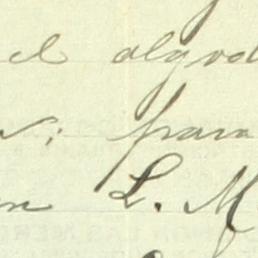 el algod
s; para
en L. M